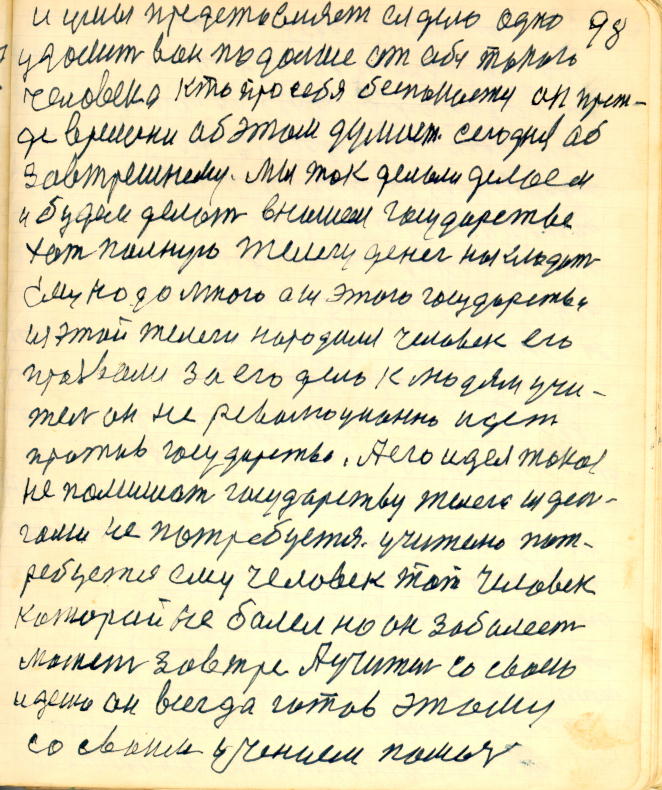 и умы представляет ся дело одно 98
удалит вон подальше от себя такого
человека кто про себя беспокаету он преж-
де времени об этом думает. сегодня об
завтрешнему. Мы так делали делаем
и будем делат внашем государстве
хот полную телегу денег накладат
ему надо много а из этого государства
из этой телеги народили человек его
прозвали за его дело к людям учи-
тел он не революционно идет
против государства. А его идея такая
не помишат государству телега из ден-
гами не потребуется. учителю пот-
ребуется ему человек тот человек
каторай не балел но он забалеет
может завтре А учител со своею
идею он всегда готов этому
со своим учением помоч